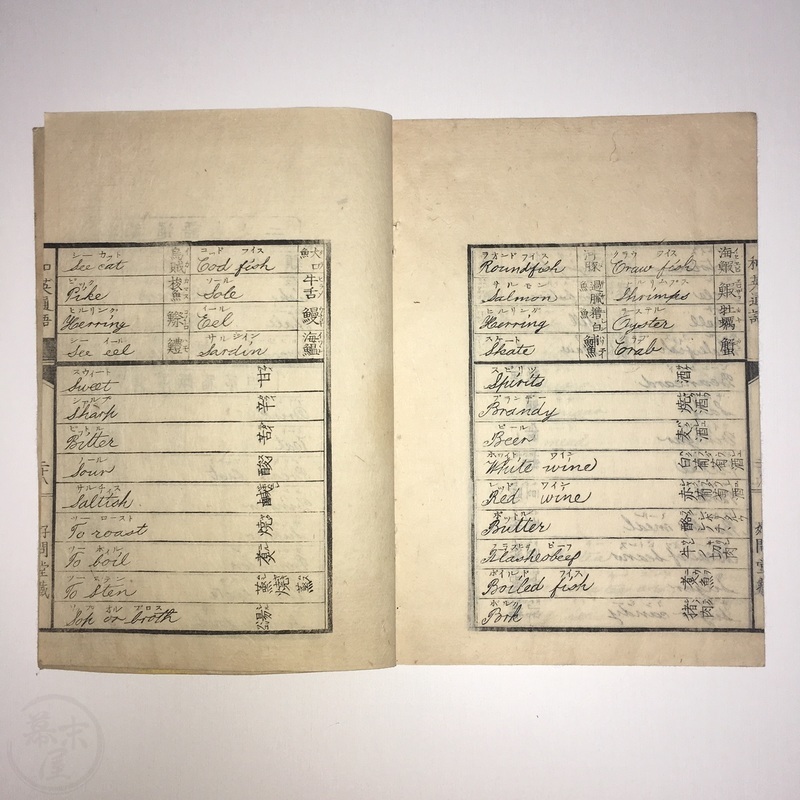 和英通語
クラウ フイス
Craw fish
海鰕
シリユムプス
Shrimps
鰕
ヲーステル
Oyster
牡蠣
クラブ
Crab
蟹
ラオンドフイス
Roundfish
河豚
サルモン
Salmon
過臘魚
ヒルリング
Herring
スケート
Skate
スピリツ
Spirits
酒
ブランデー
Brandy
焼酒
ビール
Beer
麦酒
ホワイト ワイン
White wine
白葡萄酒
レッド ワイン
Red wine
赤葡萄酒
ボットル
Butter
ビーフ
牛ノ切肉
ボイルド フイス
Boiled fish
煮魚
ポルク
Pork
猪肉
好問堂蔵
和英通語
コード フイス
Cod fish
ソール
Sole
牛舌
イール
Eel
鰻
サルジイン
Sardin
海鰮
シー カット
See cat
烏賊
Pike
梭魚
ヒルリング
Herring
シー イール
See eel
鱧
スウィート
Sweet
甘
シャルプ
Sharp
辛
ビットル
Bitter
苦
Sour
酸
サルチス
Saltish
鹹
ツー ロースト
To roast
焼
ツー ボイル
To boil
煮
To sten
蒸焼
Sop or broth
好問堂蔵
幕末屋